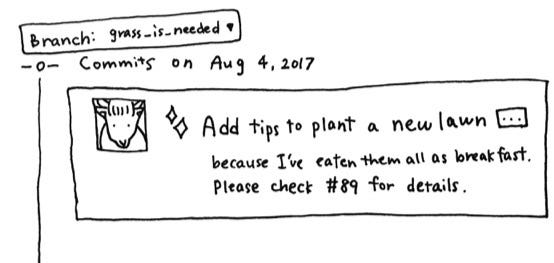 Branch: grass_is_needed ▾
Commits on Aug 4, 2017
Add tips to plant a new lawn ...
because I've eaten them all as breakfast.
Please check #89 for details.